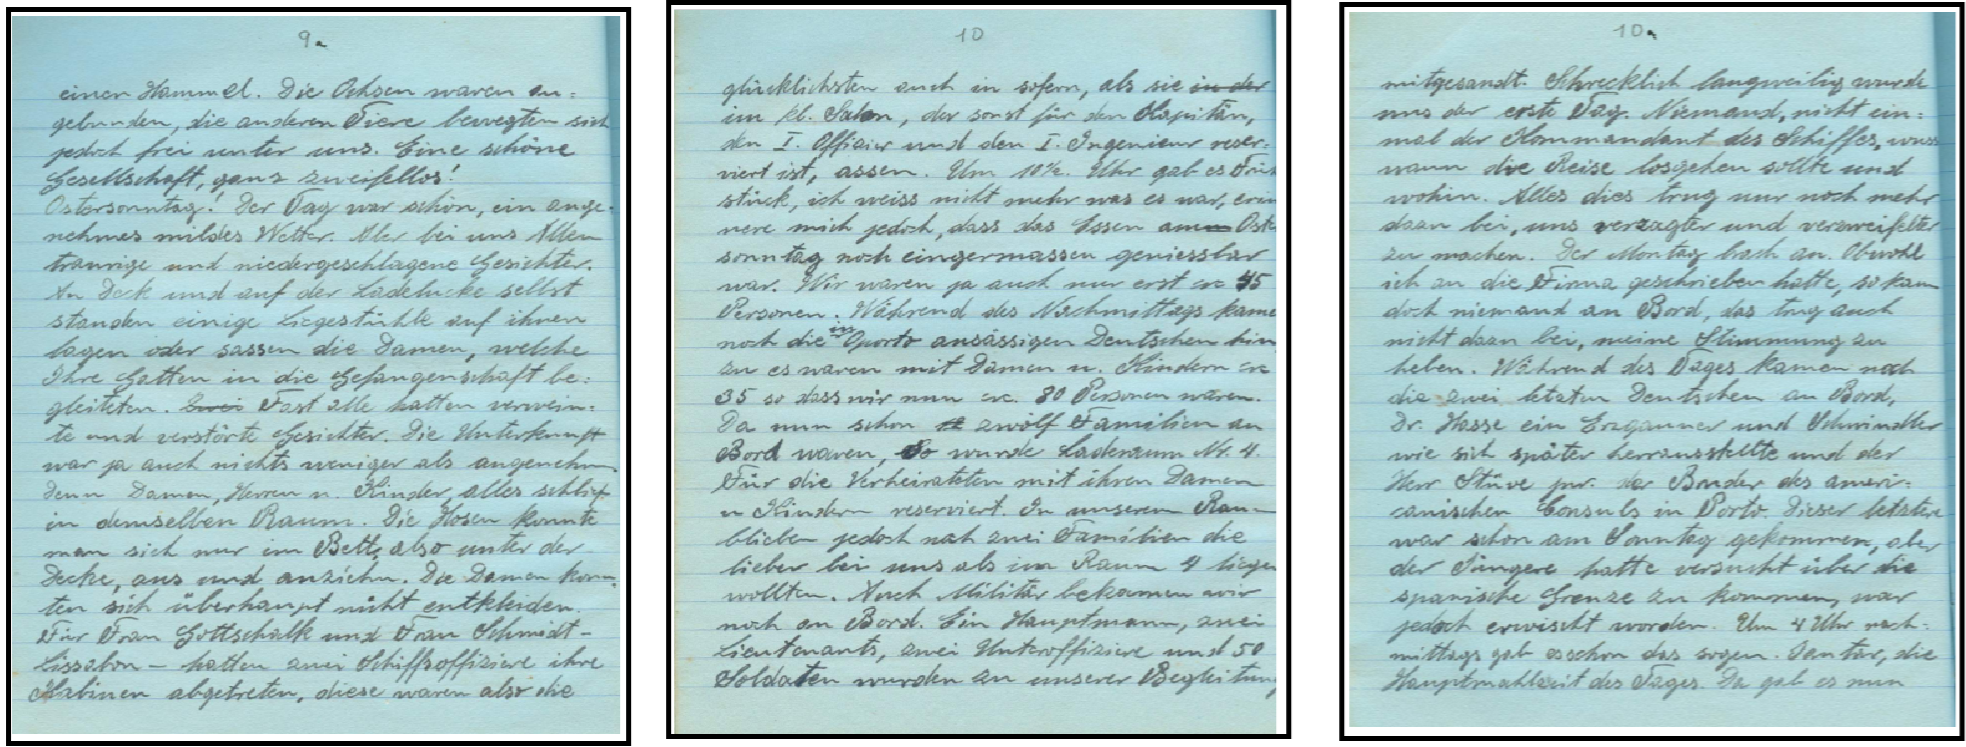 9a
einen Hammel. Die Ochsen waren an=
gebunden, die anderen Tiere bewegten sich
jedoch frei unter uns. Eine schöne
Gesellschaft, ganz zweifellos!
Ostersonntag! Der Tag war schön, ein ange-
nehmes mildes Wetter. Aber bei uns Allen
traurige und niedergeschlagene Gesichter.
An Deck und auf der Ladelucke selbst
standen einige Liegestühle auf ihnen
lagen oder sassen die Damen, welche
Ihre Gatten in die Gefangenschaft be=
gleiteten. Zwei Fast alle hatten verwein=
te und verstörte Gesichter. Die Unterkunft
war ja auch nichts weniger als angenehm
denn Damen, Herren u. Kinder, alles schlief
in demselben Raum. Die Hosen konnte
man sich nur im Bett, also unter der
Decke, aus und anziehn. Die Damen konn=
ten sich überhaupt nicht entkleiden.
Für Frau Gottschalk und Frau Schmidt-
Lissabon - hatten zwei Schiffsoffiziere ihre
Kabinen abgetreten, diese waren also die
10
glücklichsten auch in sofern, als sie in der
im kl. Salon, der sonst für den Kapitän,
den I. Offizier und den I. Ingenieur reser=
viert ist, assen. Um 10½ Uhr gab es Früh
stück, ich weiss nicht mehr was es war, erin
nere mich jedoch, dass das Essen am Oster
sonntag noch eingermassen geniessbar
war. Wir waren ja auch nur erst ca 45
Personen. Während des Nachmittags kame
noch die in Oporto ansässigen Deutschen hin
zu es waren mit Damen u. Kindern ca
35 so dass wir nun ca. 80 Personen waren.
Da nun schon zwölf Familien an
Bord waren, so wurde Laderaum Nr. 4.
Für die Verheirateten mit ihren Damen
u Kindern reserviert. In unserem Raum
blieben jedoch noch zwei Familien die
lieber bei uns als im Raum 4 liegen
wollten. Auch Militär bekamen wir
noch an Bord. Ein Hauptmann, zwei
Lieutenants, zwei Unteroffiziere und 50
Soldaten wurden zu unserer Begleitung
10a
mitgesandt. Schrecklich langweilig wurde
uns der erste Tag. Niemand, nicht ein=
mal der Kommandant des Schiffes, wuss
wann die Reise losgehen sollte und
wohin. Alles dies trug nur noch mehr
dazu bei, uns verzagter und verzweifelter
zu machen. Der Montag brach an. Obwohl
ich an die Firma geschrieben hatte, so kam
doch niemand an Bord, das trug auch
nicht dazu bei, meine Stimmung zu
heben. Während des Tages kamen noch
die zwei letzten Deutschen an Bord,
Dr. Hasse ein Erzgauner und Schwindler
wie sich später herrausstellte und der
Herr Stüve jnr. der Bruder des ameri=
canischen Consuls in Porto. Dieser letztere
war schon am Sonntag gekommen, aber
der Jüngere hatte versucht über die
spanische Grenze zu kommen, war
jedoch erwischt worden. Um 4 Uhr nach=
mittags gab es schon das sogen. Jantar, die
Hauptmahlzeit des Tages. Da gab es nun